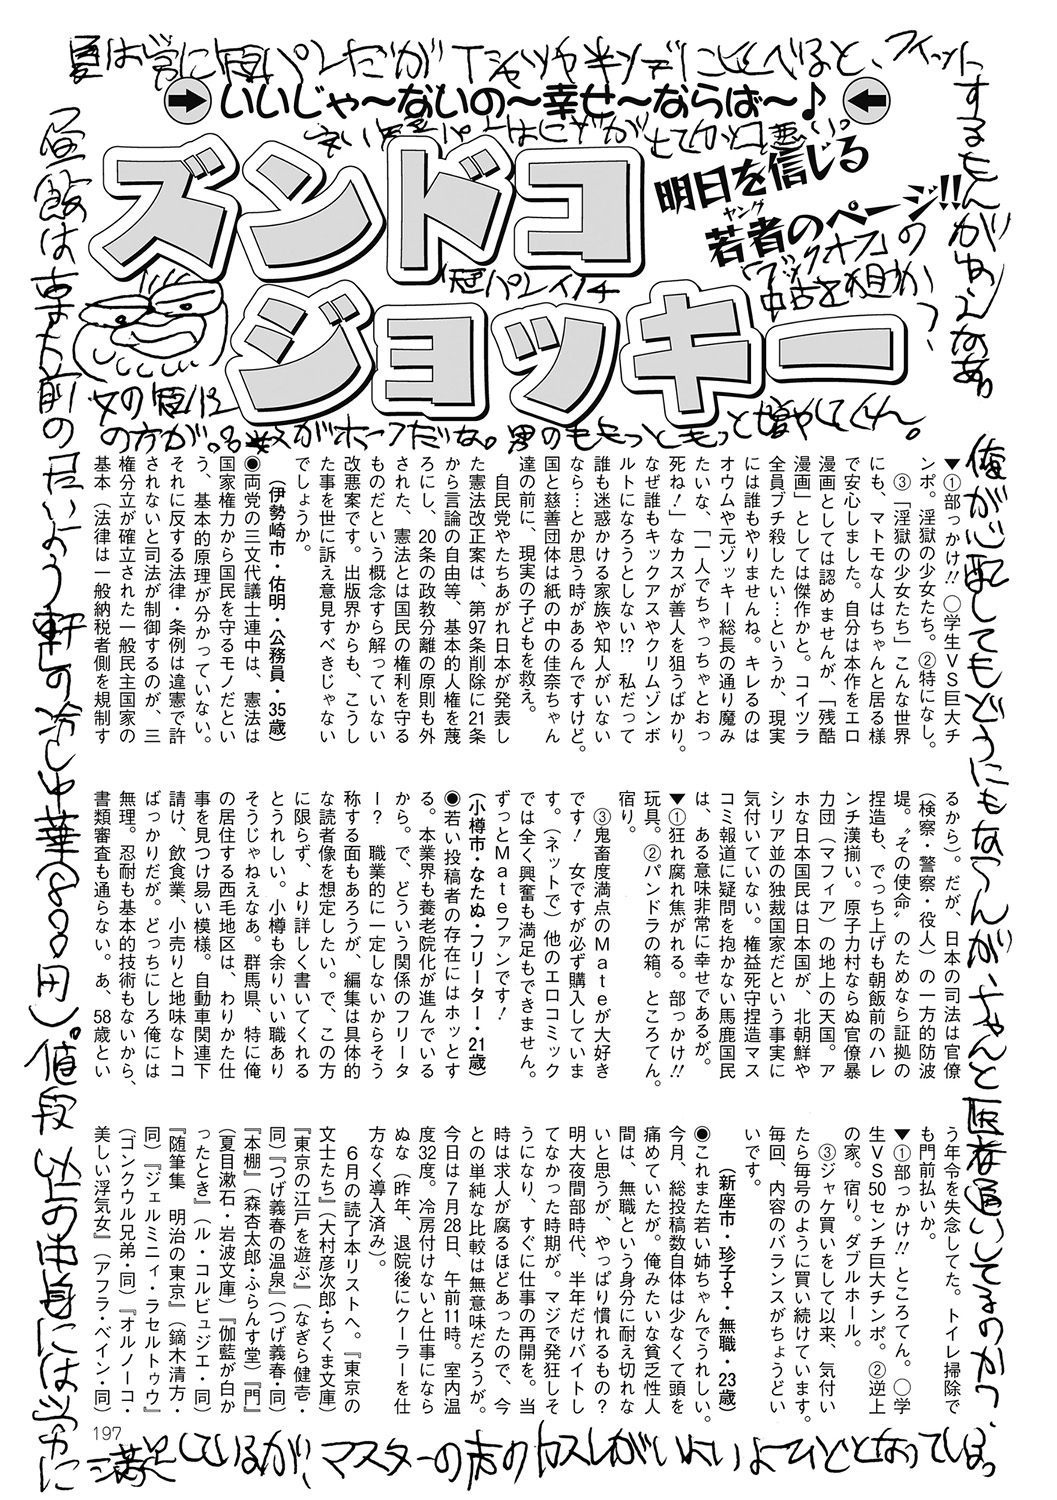 夏は常に短パンだがTシャツや半ソデにくらべると、フィット
するもんがねえなあ。
いいじゃ〜ないの〜幸せ〜ならば〜♪
ズンドコ
ジョッキー
明日を信じる
若者のページ!!
ヤング
ブックオフの
中古を狙うか
女の短パン
の方が。
俺が心配してもどうにもならんが、ちゃんと医者通いしてるのか?
昼飯はあまり前の
冷し中華(800円)。値段以上の中身には常に
満足しているが、マスターの声のカスレがいよいよひどくなっている。
▼①部っかけ!! ○学生VS巨大チ
ンポ。淫獄の少女たち。②特になし。
③「淫獄の少女たち」こんな世界
にも、マトモな人はちゃんと居る様
で安心しました。自分は本作をエロ
漫画としては認めませんが、「残酷
漫画」としては傑作かと。コイツラ
全員ブチ殺したい…というか、現実
には誰もやりませんね。キレるのは
オウムや元ゾッキー総長の通り魔み
たいな、「一人でちゃっちゃとおっ
死ね!」なカスが善人を狙うばかり。
なぜ誰もキックアスやクリムゾンボ
ルトになろうとしない!? 私だって
誰も迷惑かける家族や知人がいない
なら…とか思う時があるんですけど。
国と慈善団体は紙の中の佳奈ちゃん
達の前に、現実の子どもを救え。
自民党やたちあがれ日本が発表し
た憲法改正案は、第97条削除に21条
から言論の自由等、基本的人権を蔑
ろにし、20条の政教分離の原則も外
された、憲法とは国民の権利を守る
ものだという概念すら解っていない
改悪案です。出版界からも、こうし
た事を世に訴え意見すべきじゃない
でしょうか。
(伊勢崎市・佑明・公務員・35歳)
◉両党の三文代議士連中は、憲法は
国家権力から国民を守るモノだとい
う、基本的原理が分かっていない。
それに反する法律・条例は違憲で許
されないと司法が制御するのが、三
権分立が確立された一般民主国家の
基本(法律は一般納税者側を規制す
るから)。だが、日本の司法は官僚
(検察・警察・役人)の一方的防波
堤。〝その使命〟のためなら証拠の
捏造も、でっち上げも朝飯前のハレ
ンチ漢揃い。原子力村ならぬ官僚暴
力団(マフィア)の地上の天国。ア
ホな日本国民は日本国が、北朝鮮や
シリア並の独裁国家だという事実に
気付いていない。権益死守捏造マス
コミ報道に疑問を抱かない馬鹿国民
は、ある意味非常に幸せであるが。
▼①狂れ腐れ焦がれる。部っかけ!!
玩具。②パンドラの箱。ところてん。
宿り。
③鬼畜度満点のMateが大好き
です! 女ですが必ず購入していま
す。(ネットで)他のエロコミック
では全く興奮も満足もできません。
ずっとMateファンです!
(小樽市・なたぬ・フリーター・21歳)
◉若い投稿者の存在にはホッとす
る。本業界も養老院化が進んでいる
から。で、どういう関係のフリータ
ー? 職業的に一定しないからそう
称する面もあろうが、編集は具体的
な読者像を想定したい。で、この方
に限らず、より詳しく書いてくれる
とうれしい。小樽も余りいい職あり
そうじゃねえなあ。群馬県、特に俺
の居住する西毛地区は、わりかた仕
事を見つけ易い模様。自動車関連下
請け、飲食業、小売りと地味なトコ
ばっかりだが。どっちにしろ俺には
無理。忍耐も基本的技術もないから、
書類審査も通らない。あ、58歳とい
う年令を失念してた。トイレ掃除で
も門前払いか。
▼①部っかけ!! ところてん。○学
生VS50センチ巨大チンポ。②逆上
の家。宿り。ダブルホール。
③ジャケ買いをして以来、気付い
たら毎号のように買い続けています。
毎回、内容のバランスがちょうどい
いです。
(新座市・珍子♀・無職・23歳)
◉これまた若い姉ちゃんでうれしい。
今月、総投稿数自体は少なくて頭を
痛めていたが。俺みたいな貧乏性人
間は、無職という身分に耐え切れな
いと思うが、やっぱり慣れるもの?
明大夜間部時代、半年だけバイトし
てなかった時期が。マジで発狂しそ
うになり、すぐに仕事の再開を。当
時は求人が腐るほどあったので、今
との単純な比較は無意味だろうが。
今日は7月28日、午前11時。室内温
度32度。冷房付けないと仕事になら
ぬな(昨年、退院後にクーラーを仕
方なく導入済み)。
6月の読了本リストへ。『東京の
文士たち』(大村彦次郎・ちくま文庫)
『東京の江戸を遊ぶ』(なぎら健壱・
同)『つげ義春の温泉』(つげ義春・同)
『本棚』(森杏太郎・ふらんす堂)『門』
(夏目漱石・岩波文庫)『伽藍が白か
ったとき』(ル・コルビュジエ・同)
『随筆集 明治の東京』(鏑木清方・
同)『ジェルミニィ・ラセルトゥウ』
(ゴンクウル兄弟・同)『オルノーコ・
美しい浮気女』(アフラ・ベイン・同)
197